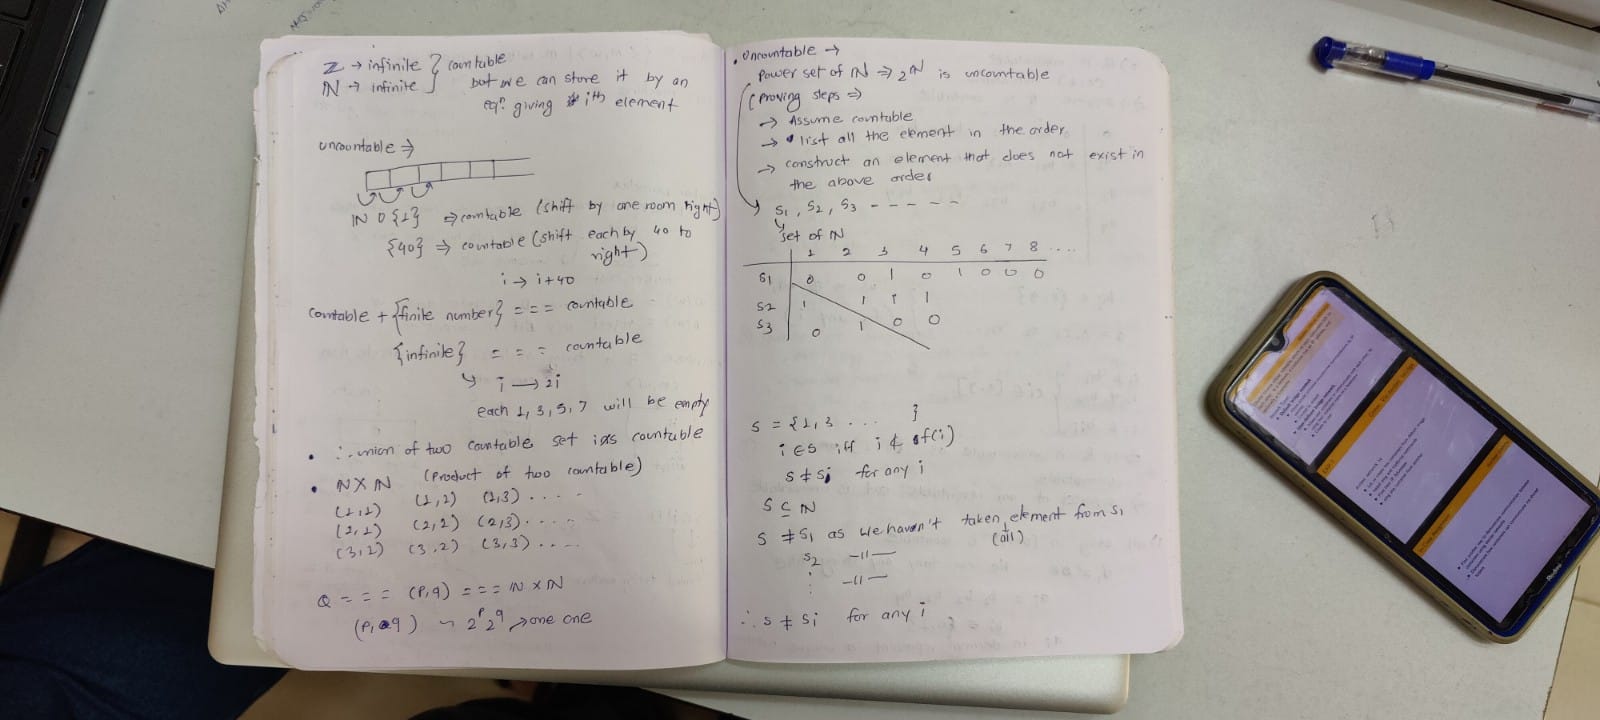 Z → infinite } countable
N → infinite } but we can store it by an
eqn. giving ith element
uncountable ⇒
IN ∪ {1} ⇒ countable (shift by one room right)
{40} ⇒ countable (shift each by 40 to
right)
i → i+40
countable + {finite number} = = = countable
{infinite} = = = countable
↳ i → 2i
each 1, 3, 5, 7 will be empty
• ∴ union of two countable set is countable
• N X IN (product of two countable)
(1,1) (1,2) (1,3) . . . . .
(2,1) (2,2) (2,3) . . . . .
(3,1) (3,2) (3,3) . . . .
Q = = = (P,q) = = = IN X IN
(P, q) ~ 2^P 2^q → one one
• Uncountable →
power set of IN ⇒ 2^IN is uncountable
(proving steps ⇒
→ Assume countable
→ list all the element in the order
→ construct an element that does not exist in
the above order
S1, S2, S3 - - - - - -
↳ Set of IN
1 2 3 4 5 6 7 8 ....
S1 0 0 1 0 1 0 0 0
S2 1 1 1 1
S3 0 1 0 0
S = {1, 3 ... }
i ∈ S iff i ∉ f(i)
S ≠ Si for any i
S ⊆ IN
S ≠ S1 as we haven't taken element from S1
(all)
S2 —11—
⋮ —11—
∴ S ≠ Si for any i